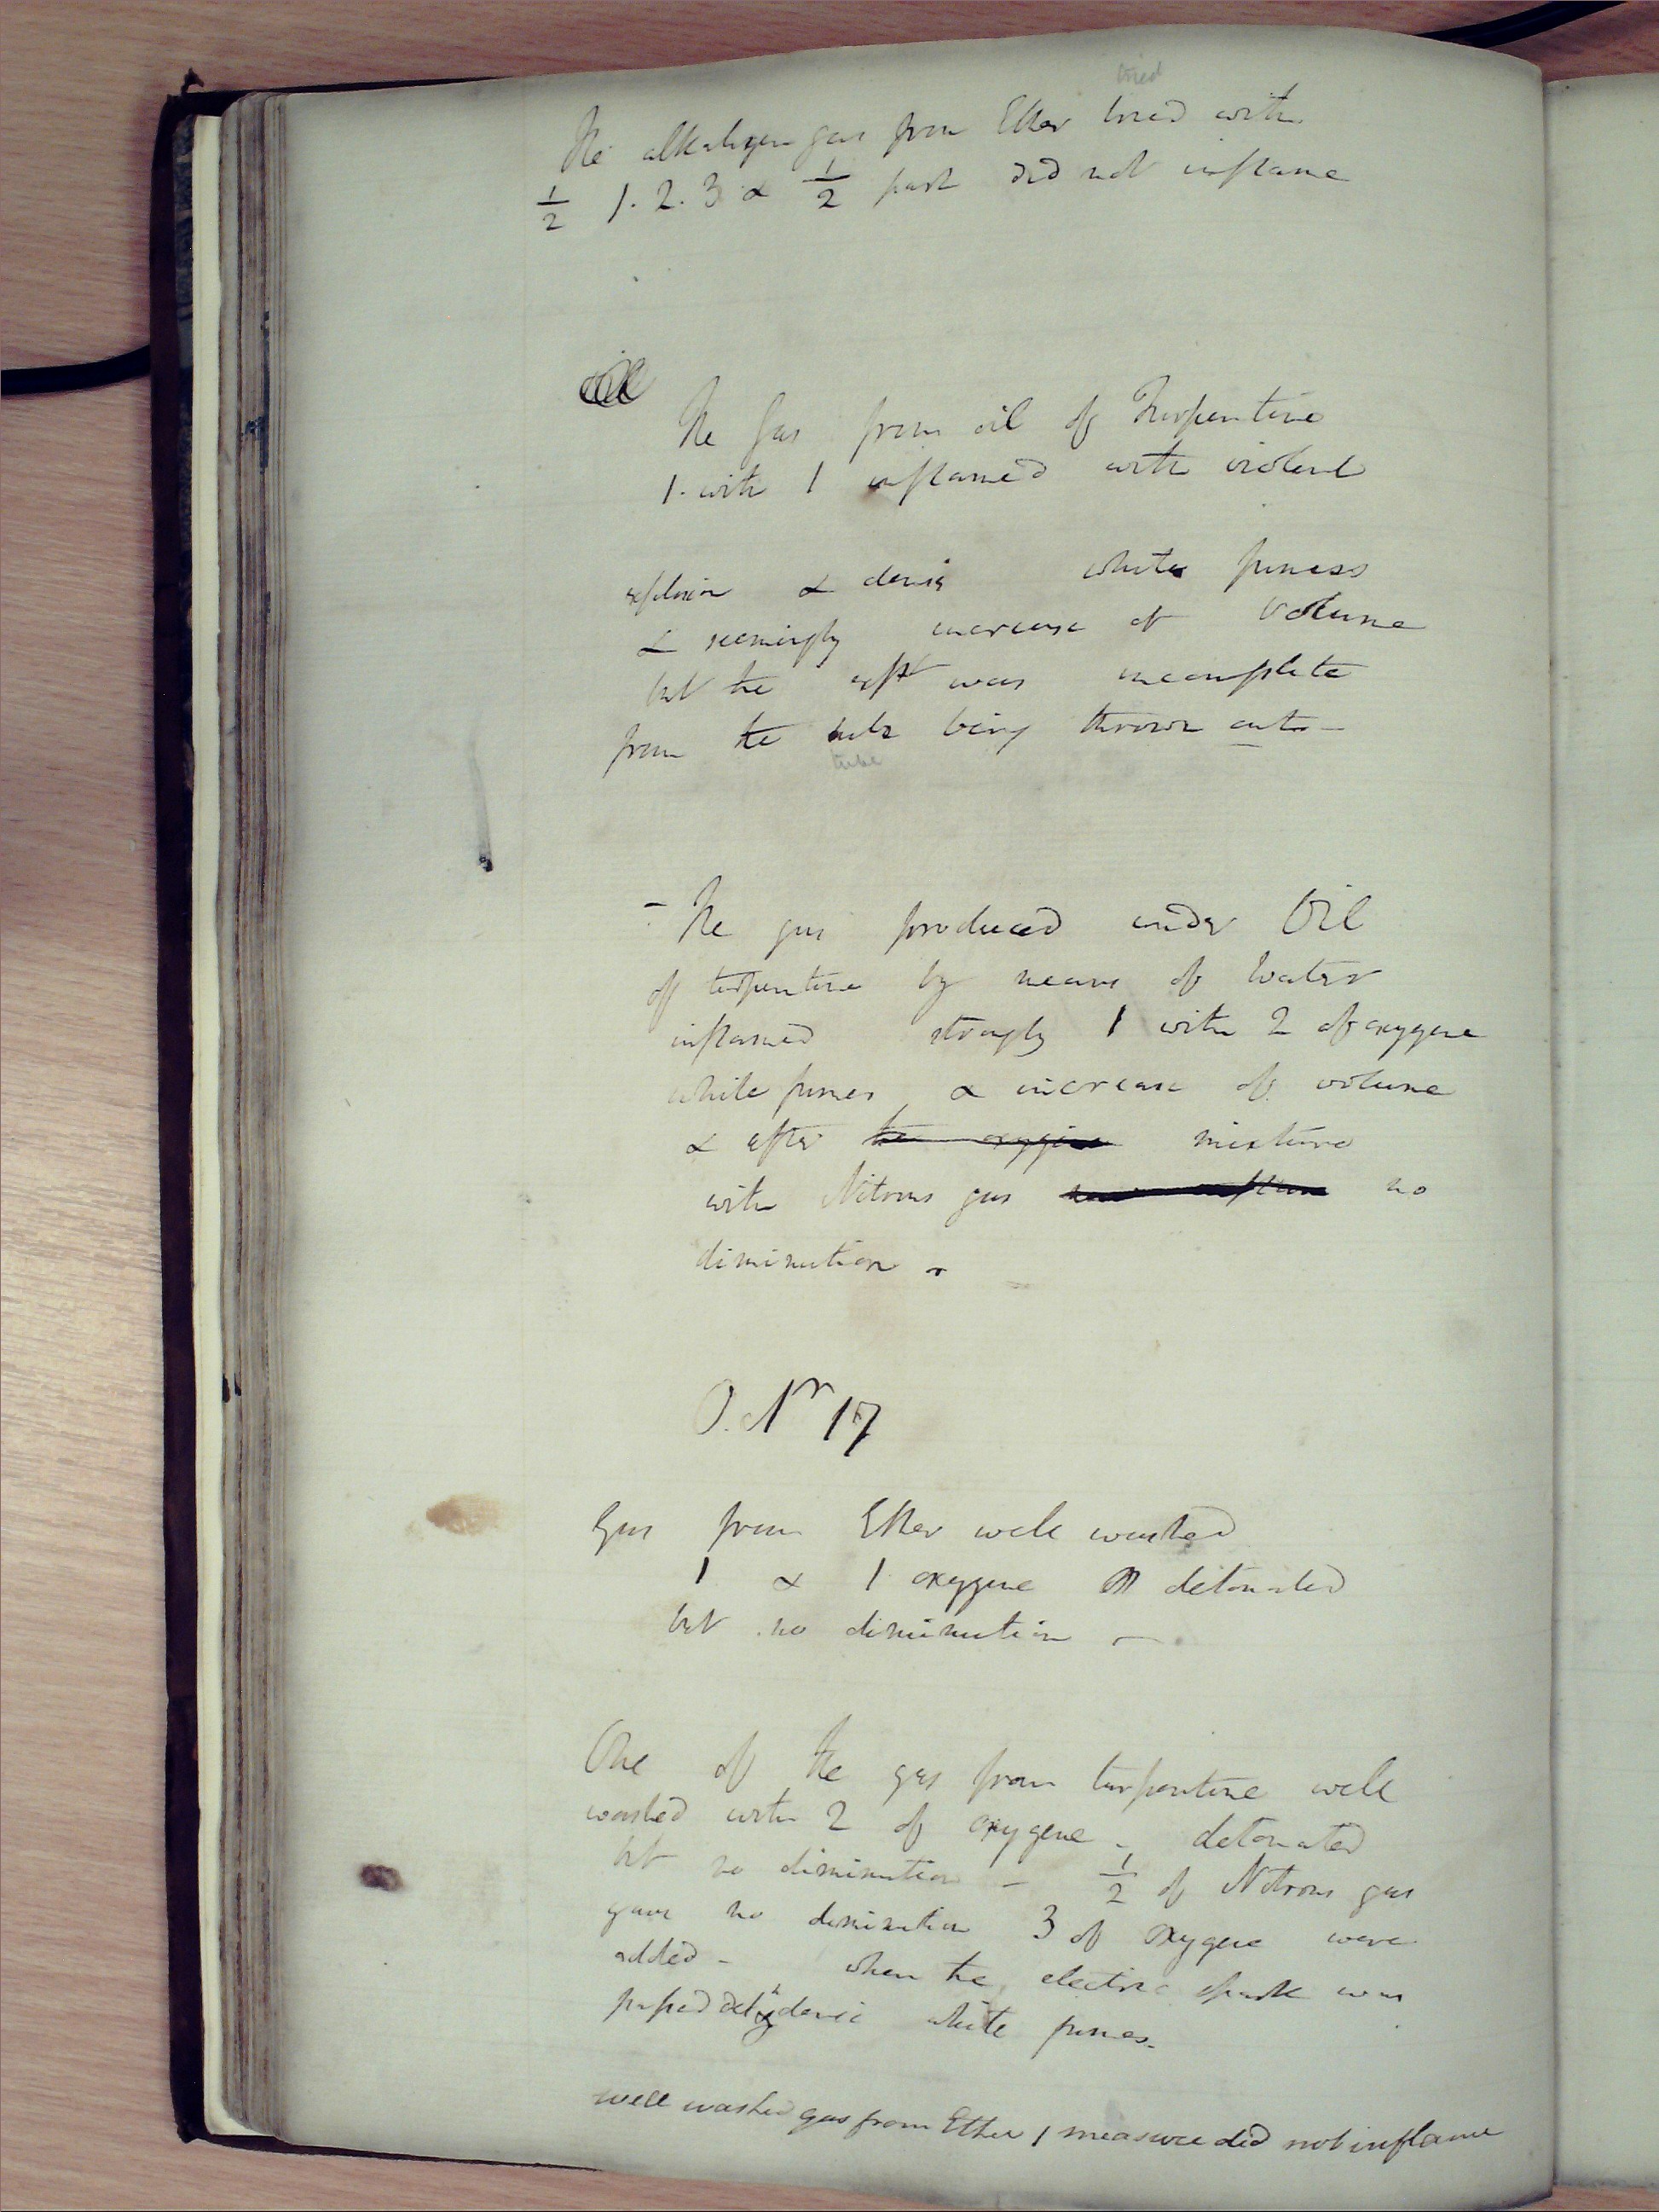 tried
The alkaligen gas from Ether tried with
1/2 1. 2. 3 & 1/2 part did not inflame
The Gas from oil of Turpentine
1. with 1 inflamed with violent
explosion & dense white fumess
& seemingly increase of Volume
but the expt was incomplete
from the tube being thrown out. –
tube
– The gas produced under Oil
of turpentine by means of Water
inflamed strongly 1 with 2 of oxygene
white fumes & increase of volume
& after the oxygene mixture
with Nitrous gas no
diminution.
O. Nr 17
Gas from Ether well washed
1 & 1 oxygene detonated
but no diminution –
One of the gas from turpentine well
washed with 2 of oxygene – detonated
but no diminution – 1/2 of Nitrous gas
gave no diminution 3 of oxygene were
added – when the electric spark was
passed detd & dense white fumes.
well washed gas from Ether 1 measure did not inflame